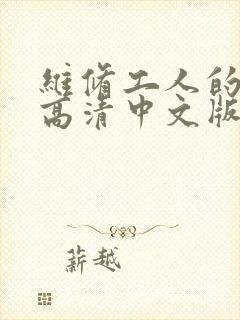 維脩工人的
高清中文版
薪越